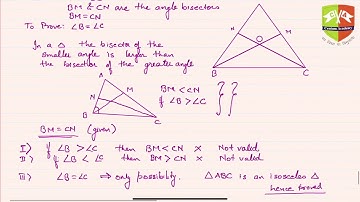 BM & CN are the angle bisectors
BM = CN
To Prove: ∠B = ∠C
In a △ the bisector of the
smaller angle is larger than
the bisector of the greater angle
A
N
M
O
B
C
A
N
M
B
C
BM < CN
if ∠B > ∠C
BM = CN (given)
I) if ∠B > ∠C then BM < CN × Not valid
II) if ∠B < ∠C then BM > CN × Not valid
III) ∠B = ∠C ⇒ only possibility. △ABC is an isosceles △
hence proved